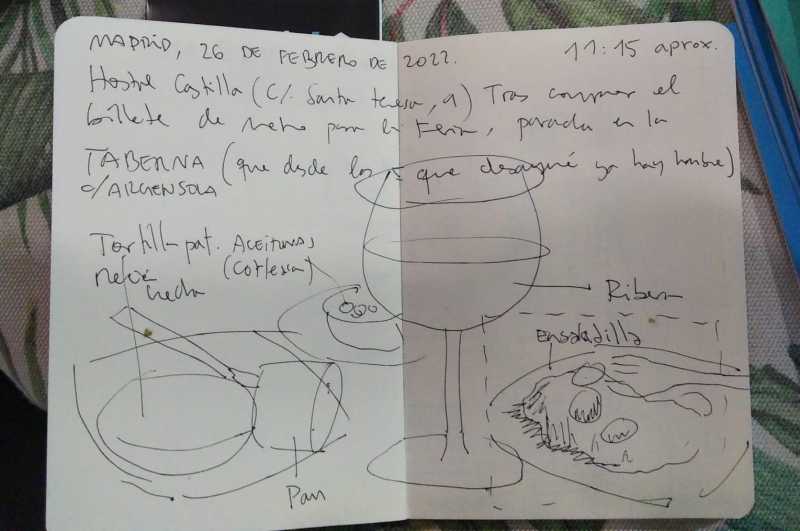 MADRID, 26 DE FEBRERO DE 2022. 11:15 aprox.
Hostal Castilla (C/. Santa Teresa, 9) Tras comprar el
billete de metro para la Feria, parada en la
TABERNA (que desde las que desayuné ya hay hambre)
C/ARGENSOLA
Tortilla pat.
recién
hecha
ACEITUNAS
(cortesía)
Ribera
ensaladilla
Pan